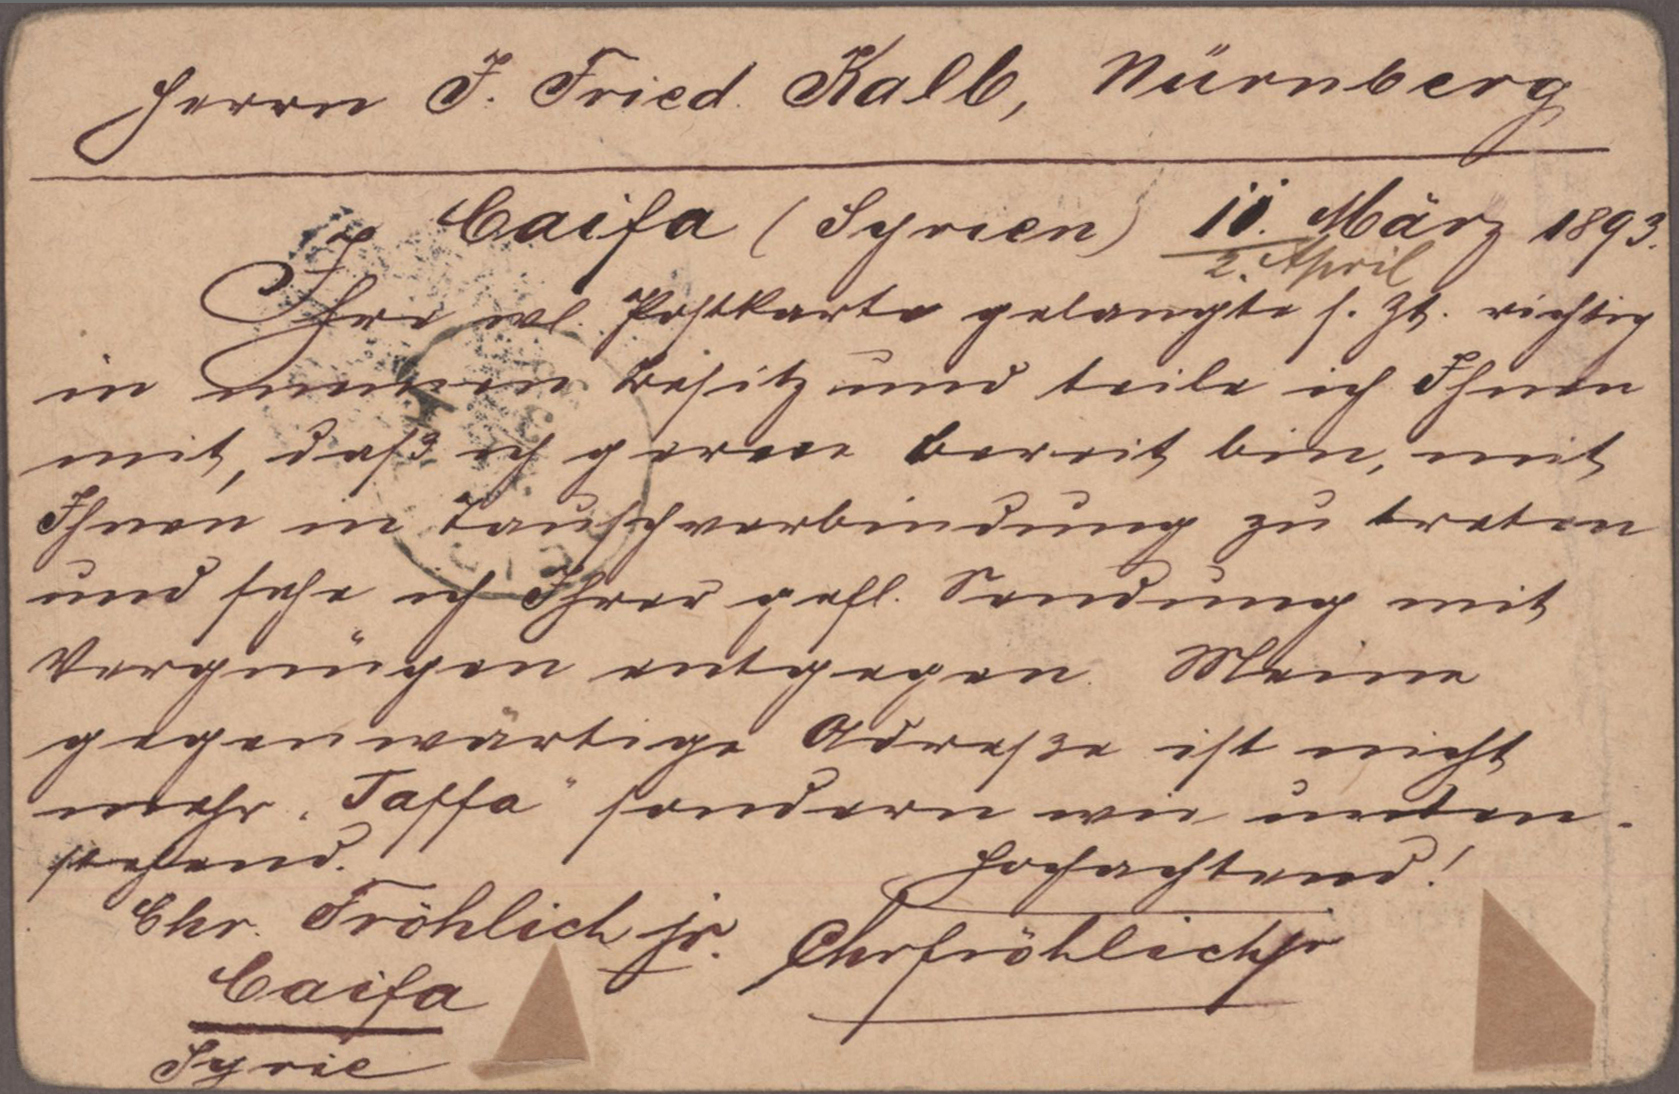 Herrn J. Fried. Kalb, Nürnberg
Caifa (Syrien) 11. März 1893.
2. April
Ihre wl. Postkarte gelangte s. Zt. richtig
in meinen Besitz und teile ich Ihnen
mit, daß ich gerne bereit bin, mit
Ihnen in Tauschverbindung zu treten
und sehe ich Ihrer gefl. Sendung mit
Vergnügen entgegen. Meine
gegenwärtige Adreße ist nicht
mehr „Jaffa" sondern wie unten-
stehend.
Hochachtend!
Chr. Fröhlich jr.
Chr Fröhlich jr
Caifa
Syrie